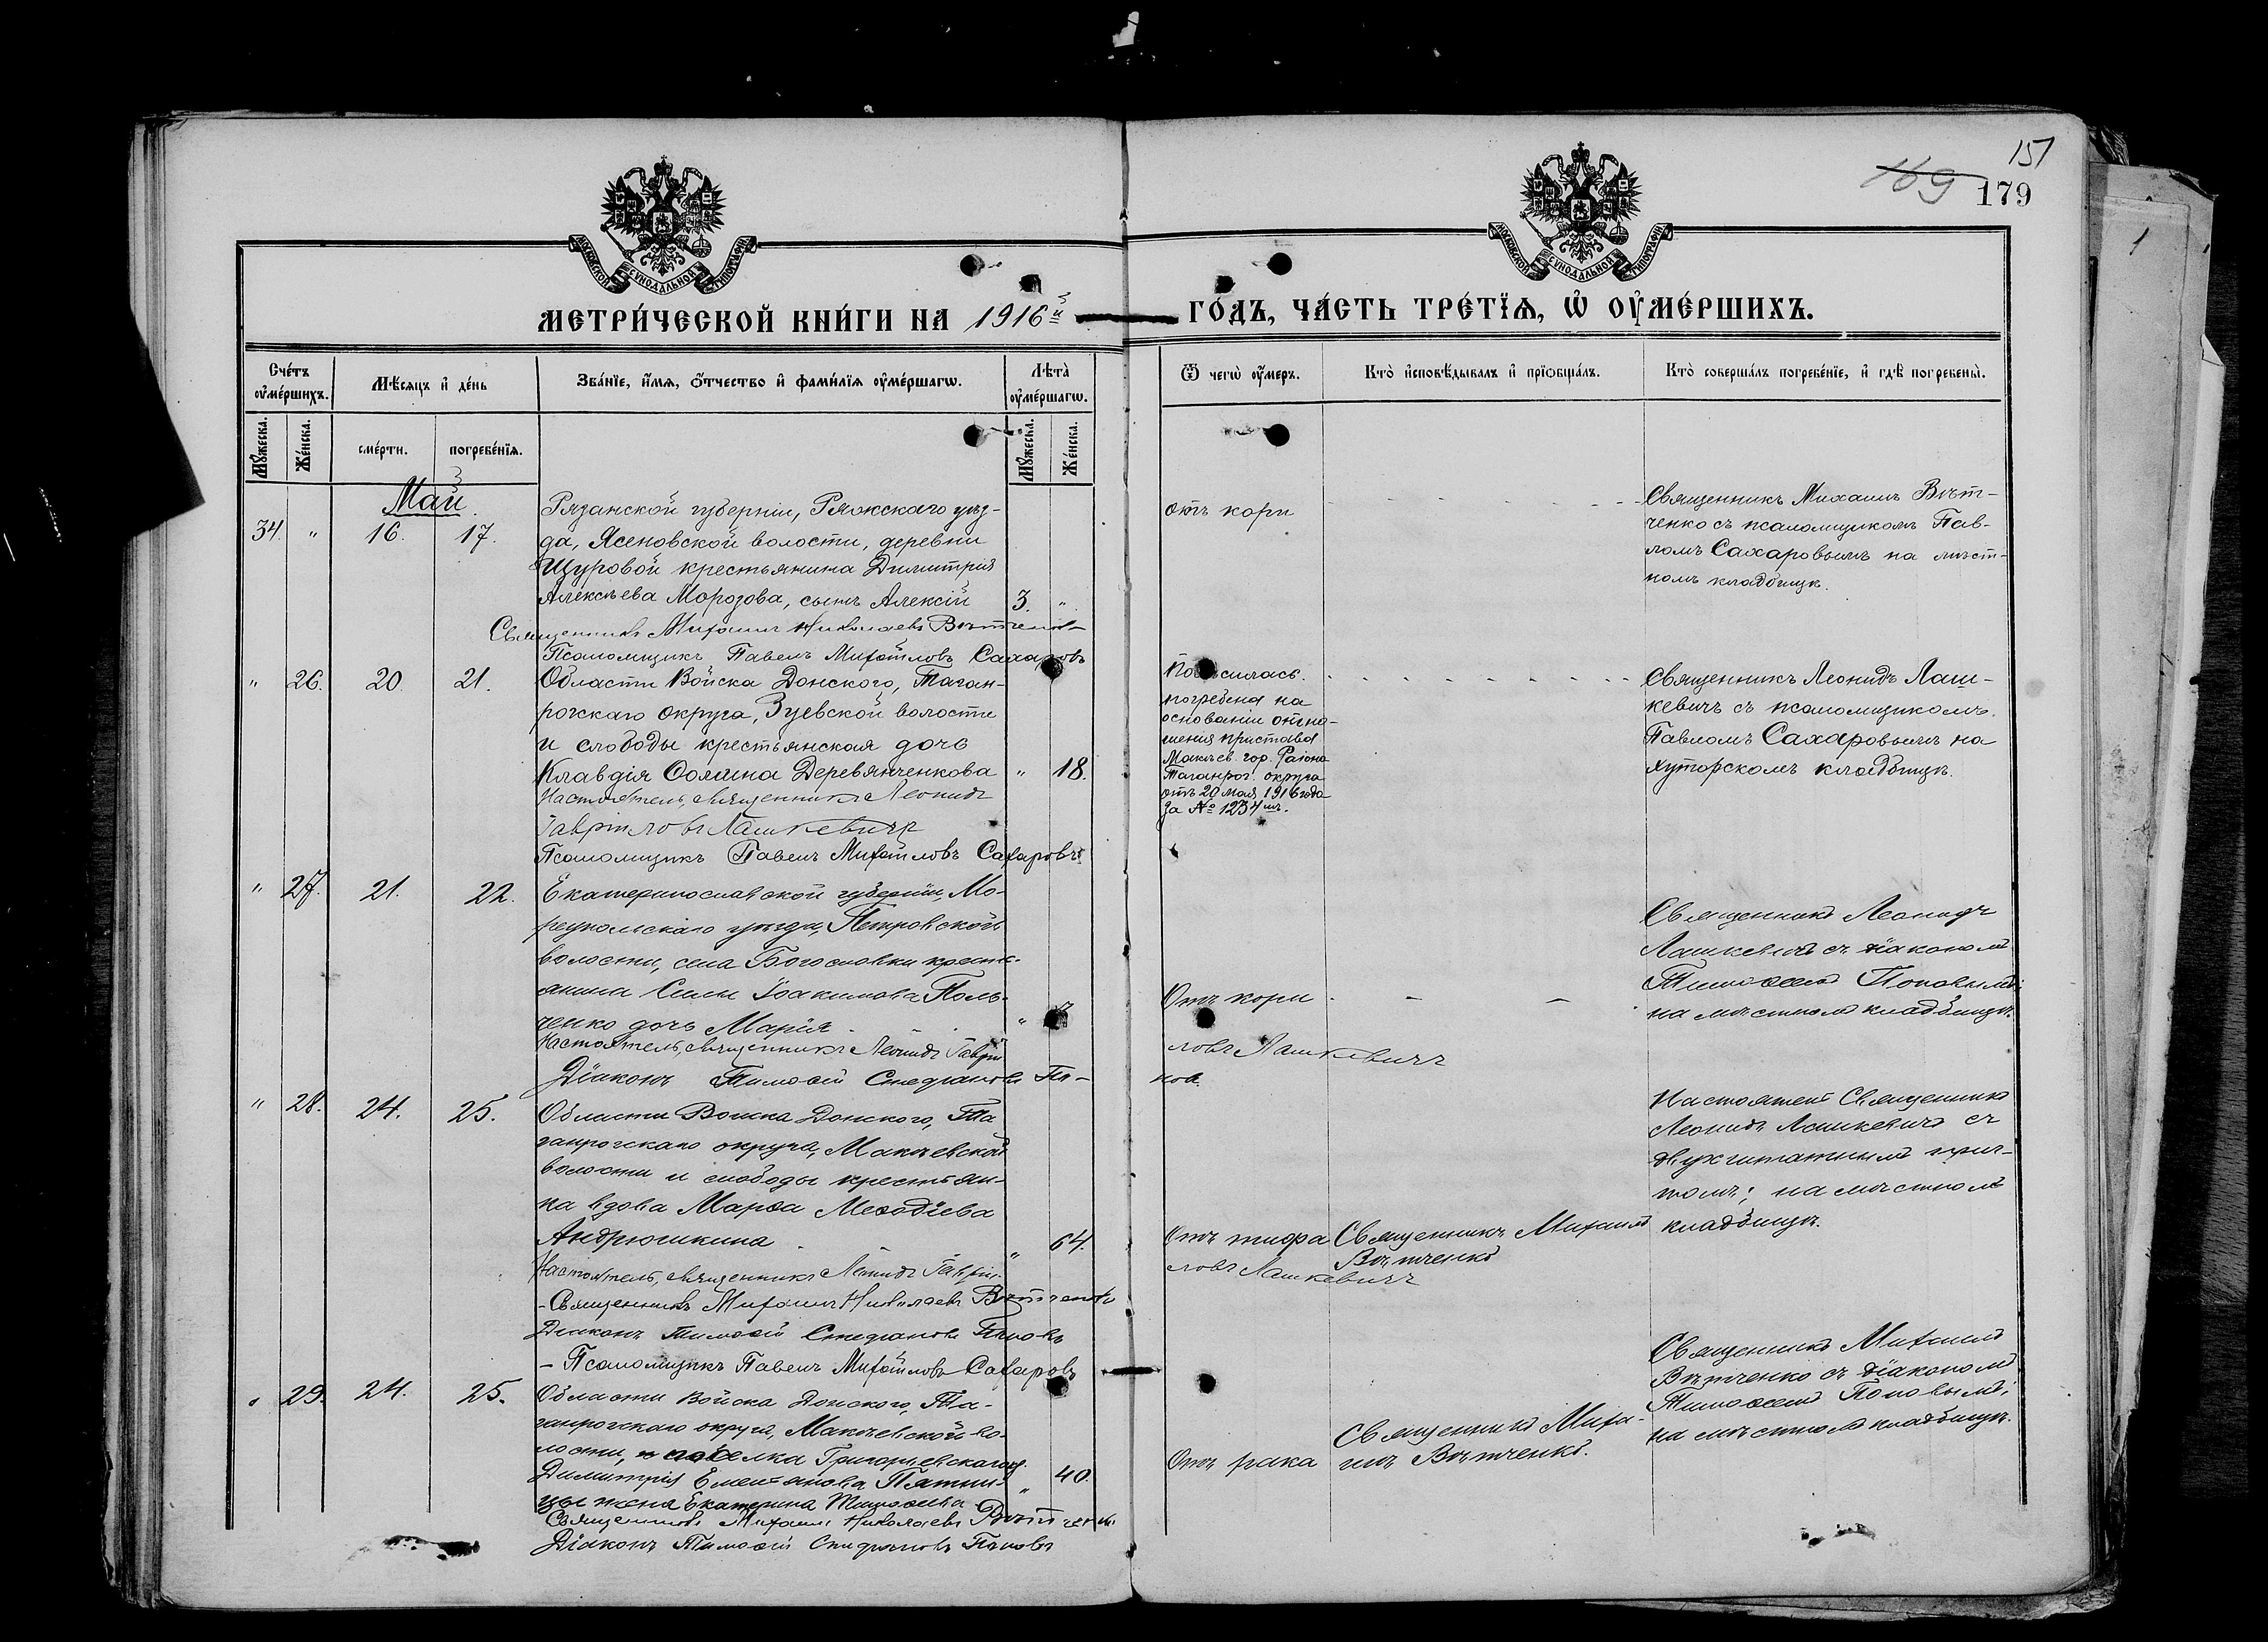 151
169 179
МОСКОВСКОЙ СѴНОДАЛЬНОЙ ТИПОГРАФІИ
МОСКОВСКОЙ СѴНОДАЛЬНОЙ ТИПОГРАФІИ
МЕТРИ́ЧЕСКОЙ КНИ́ГИ НА 1916й ГО́ДЪ, ЧА́СТЬ ТРЕ́ТЇѦ, Ѡ҆ ОУ҆МЕ́РШИХЪ.
Сче́тъ оу҆ме́ршихъ.
Мѣ́сяцъ и҆ де́нь
Зва́нїе, и҆́мѧ, ѻ҆́тчество и҆ фами́лїѧ оу҆ме́ршагѡ.
Лѣта̀ оу҆ме́ршагѡ.
Ѿ чегѡ̀ оу҆́меръ.
Кто̀ и҆сповѣ́дывалъ и҆ прїѡбща́лъ.
Кто̀ соверша́лъ погребе́нїе, и҆ гдѣ̀ погребены̀.
Му́жеска.
Же́нска.
сме́рти.
погребе́нїѧ.
Му́жеска.
Же́нска.
Май.
34. " 16. 17.
Рязанской губерніи, Ряжскаго уѣз-
да, Ясеновской волости, деревни
Щуровой крестьянина Димитрія
Алексѣева Морозова, сынъ Алексій 3. "
Священникъ Михаилъ Николаевъ Вѣтченко
Псаломщикъ Павелъ Михайловъ Сахаровъ
отъ кори
Священникъ Михаилъ Вѣт-
ченко съ псаломщикомъ Пав-
ломъ Сахаровымъ на мѣст-
номъ кладбищѣ.
" 26. 20. 21.
Области Войска Донского, Таган-
рогскаго округа, Зуевской волости
и слободы крестьянская дочь
Клавдія Ѳомина Деревянченкова " 18.
Настоятель, священникъ Леонидъ
Гавріиловъ Лашкевичъ
Псаломщикъ Павелъ Михайловъ Сахаровъ
Повѣсилась.
погребена на
основаніи отно-
шенія пристава
Макѣев. гор. Раіона
Таганрог. округа
отъ 20 мая 1916 года
за № 1234мъ.
Священникъ Леонидъ Лаш-
кевичъ съ псаломщикомъ
Павломъ Сахаровымъ на
хуторскомъ кладбищѣ.
" 27. 21. 22.
Екатеринославской губерніи, Мо-
реупольскаго уѣзда, Петровской
волости, села Богословки кресть-
янина Силы Іоакимова Поль-
ченко дочь Марія "
Настоятель, священникъ Леонидъ Гаврiи-
ловъ Лашкевичъ
Діаконъ Тимоѳей Стефановъ По-
повъ
Отъ кори
Священникъ Леонидъ
Лашкевичъ съ діакономъ
Тимоѳеемъ Поповымъ;
на мѣстномъ кладбищѣ.
" 28. 24. 25.
Области Войска Донского, Та-
ганрогскаго округа, Макѣевской
волости и слободы крестьян-
ка вдова Марѳа Меѳодіева
Андрюшкина " 64.
Настоятель, священникъ Леонидъ Гаврiи-
ловъ Лашкевичъ
- Священникъ Михаилъ Николаевъ Вѣтченко
Діаконъ Тимоѳей Стефановъ Поповъ
- Псаломщикъ Павелъ Михайловъ Сахаровъ
Отъ тифа
Священникъ Михаилъ
Вѣтченко
Настоятель Священникъ
Леонидъ Лашкевичъ съ
двухштатнымъ прич-
томъ; на мѣстномъ
кладбищѣ.
" 29. 24. 25.
Области Войска Донского, Та-
ганрогскаго округа, Макѣевской во-
лости, поселка Григорьевскаго
Димитрія Емельянова Пятни-
цы жена Екатерина Тимоѳеева " 40.
Священникъ Михаилъ Николаевъ Вѣтченко
Діаконъ Тимоѳей Стефановъ Поповъ
Отъ рака
Священникъ Миха-
илъ Вѣтченко.
Священникъ Михаилъ
Вѣтченко съ діакономъ
Тимоѳеемъ Поповымъ;
на мѣстномъ кладбищѣ.
1